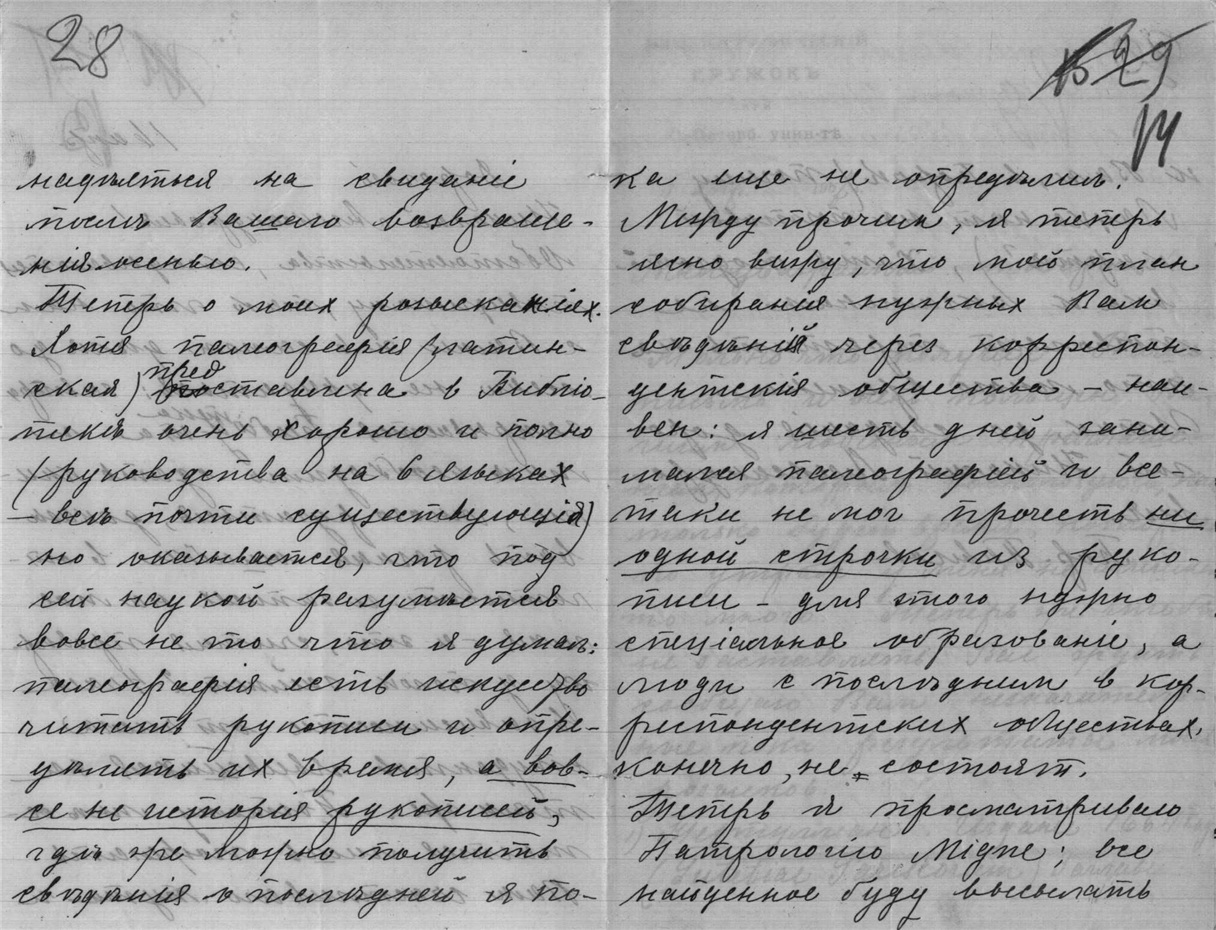 28
надѣяться на свиданіе
послѣ Вашаго возвраще-
нія осенью.
Теперь о моихъ розысканіях.
Хотя палеографія (латин-
ская) представлена в Библіо-
текѣ очень хорошо и полно
(руководства на 6 языках
– всѣ почти существующія)
но оказывается, что под
сей наукой разумѣется
вовсе не то что я думал:
палеографія есть искуство
читать рукописи и опре-
дѣлять их время, а вов-
се не исторія рукописей,
гдѣ же можно получить
свѣдѣнія о послѣдней я по-
29
14
ка еще не опредѣлил.
Между прочим, я теперь
ясно вижу, что мой план
собиранія нужных Вам
свѣдѣній через корреспон-
дентскія общества – наи-
вен: я шесть дней зани-
мался палеографіей и все-
таки не мог прочесть ни
одной строчки из руко-
писи – для этого нужно
спеціальное образованіе, а
люди с послѣдним в кор-
респондентских обществах,
конечно, не состоят.
Теперь я просматриваю
Патрологію Migne; все
найденное буду высылать